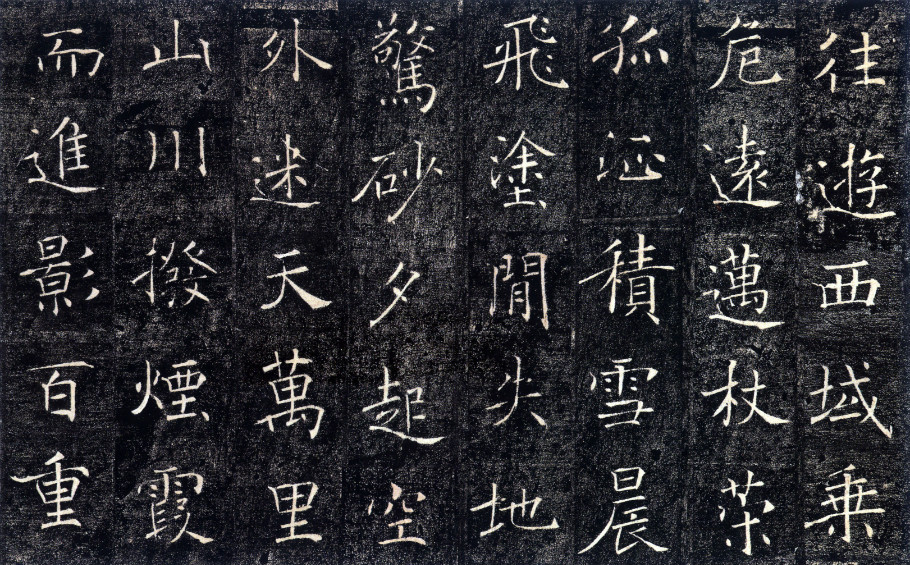 往遊西域乘
危遠邁杖策
孤征積雪晨
飛塗閒失地
驚砂夕起空
外迷天萬里
山川撥煙霞
而進影百重